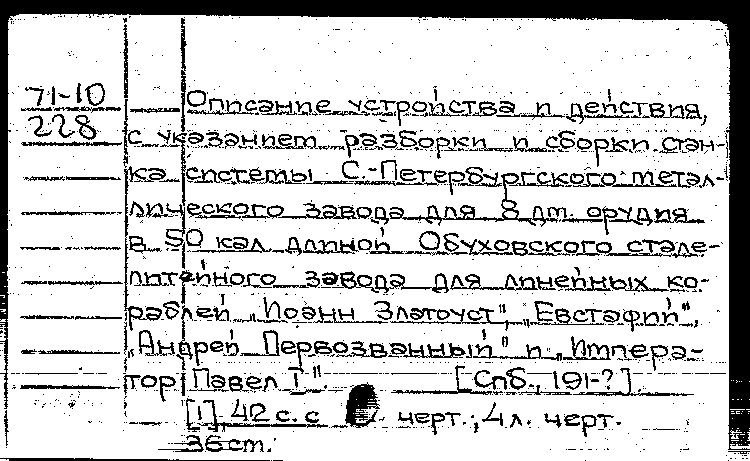 71-10
228
Описание устройства и действия,
с указанием разборки и сборки стан-
ка системы С.-Петербургского метал-
лического завода для 8 дм. орудия
в 50 кал длиной Обуховского стале-
литейного завода для линейных ко-
раблей „Иоанн Златоуст", „Евстафий",
„Андрей Первозванный" и „Импера-
тор Павел I". [Спб., 191-?].
[1], 42 с. с черт.; 4 л. черт.
36 cm.